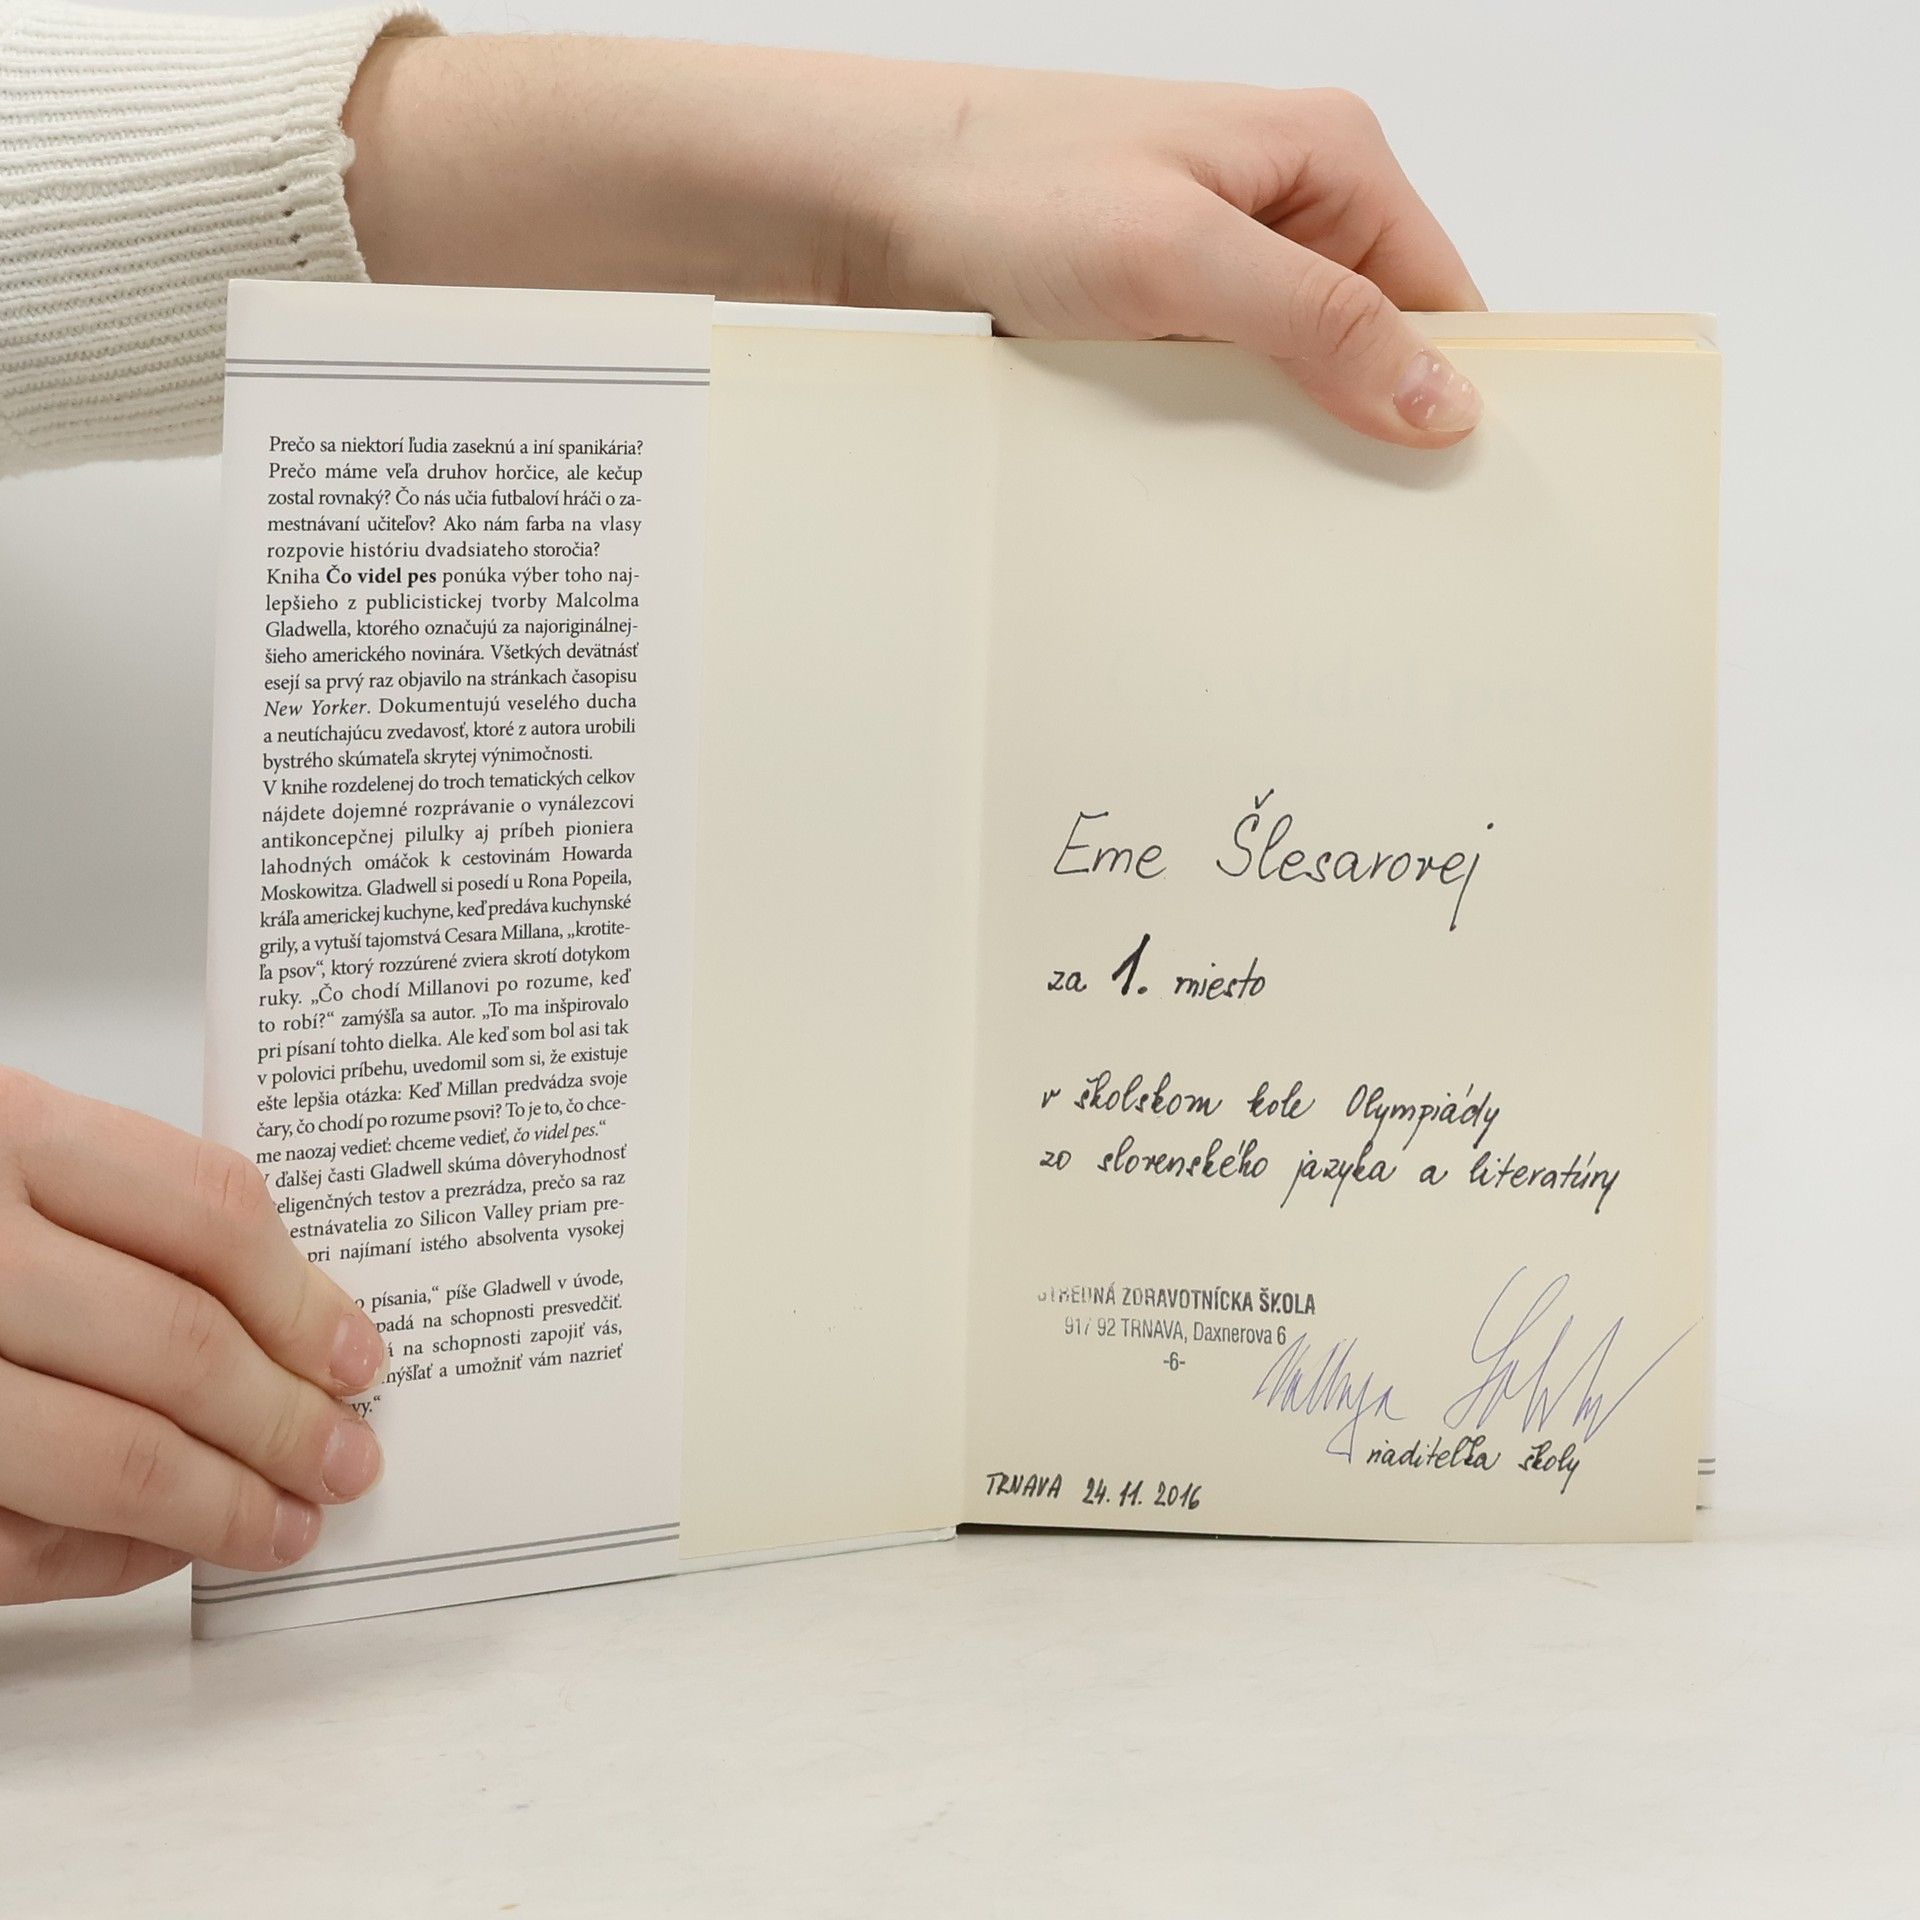 Prečo sa niektorí ľudia zaseknú a iní spanikária?
Prečo máme veľa druhov horčice, ale kečup
zostal rovnaký? Čo nás učia futbaloví hráči o za-
mestnávaní učiteľov? Ako nám farba na vlasy
rozpovie históriu dvadsiateho storočia?
Kniha Čo videl pes ponúka výber toho naj-
lepšieho z publicistickej tvorby Malcolma
Gladwella, ktorého označujú za najoriginálnej-
šieho amerického novinára. Všetkých devätnásť
esejí sa prvý raz objavilo na stránkach časopisu
New Yorker. Dokumentujú veselého ducha
a neutíchajúcu zvedavosť, ktoré z autora urobili
bystrého skúmateľa skrytej výnimočnosti.
V knihe rozdelenej do troch tematických celkov
nájdete dojemné rozprávanie o vynálezcovi
antikoncepčnej pilulky aj príbeh pioniera
lahodných omáčok k cestovinám Howarda
Moskowitza. Gladwell si posedí u Rona Popeila,
kráľa americkej kuchyne, keď predáva kuchynské
grily, a vytuší tajomstvá Cesara Millana, „krotite-
ľa psov“, ktorý rozzúrené zviera skrotí dotykom
ruky. „Čo chodí Millanovi po rozume, keď
to robí?“ zamýšľa sa autor. „To ma inšpirovalo
pri písaní tohto dielka. Ale keď som bol asi tak
v polovici príbehu, uvedomil som si, že existuje
ešte lepšia otázka: Keď Millan predvádza svoje
čary, čo chodí po rozume psovi? To je to, čo chce-
me naozaj vedieť: chceme vedieť, čo videl pes.“
V ďalšej časti Gladwell skúma dôveryhodnosť
teligenčných testov a prezrádza, prečo sa raz
estnávatelia zo Silicon Valley priam pre-
pri najímaní istého absolventa vysokej
o písania,“ píše Gladwell v úvode,
padá na schopnosti presvedčiť.
á na schopnosti zapojiť vás,
mýšľať a umožniť vám nazrieť
vy.“
Eme Šlesarovej
za 1. miesto
v školskom kole Olympiády
zo slovenského jazyka a literatúry
STREDNÁ ZDRAVOTNÍCKA ŠKOLA
917 92 TRNAVA, Daxnerova 6
-6-
riaditeľka školy
TRNAVA 24. 11. 2016